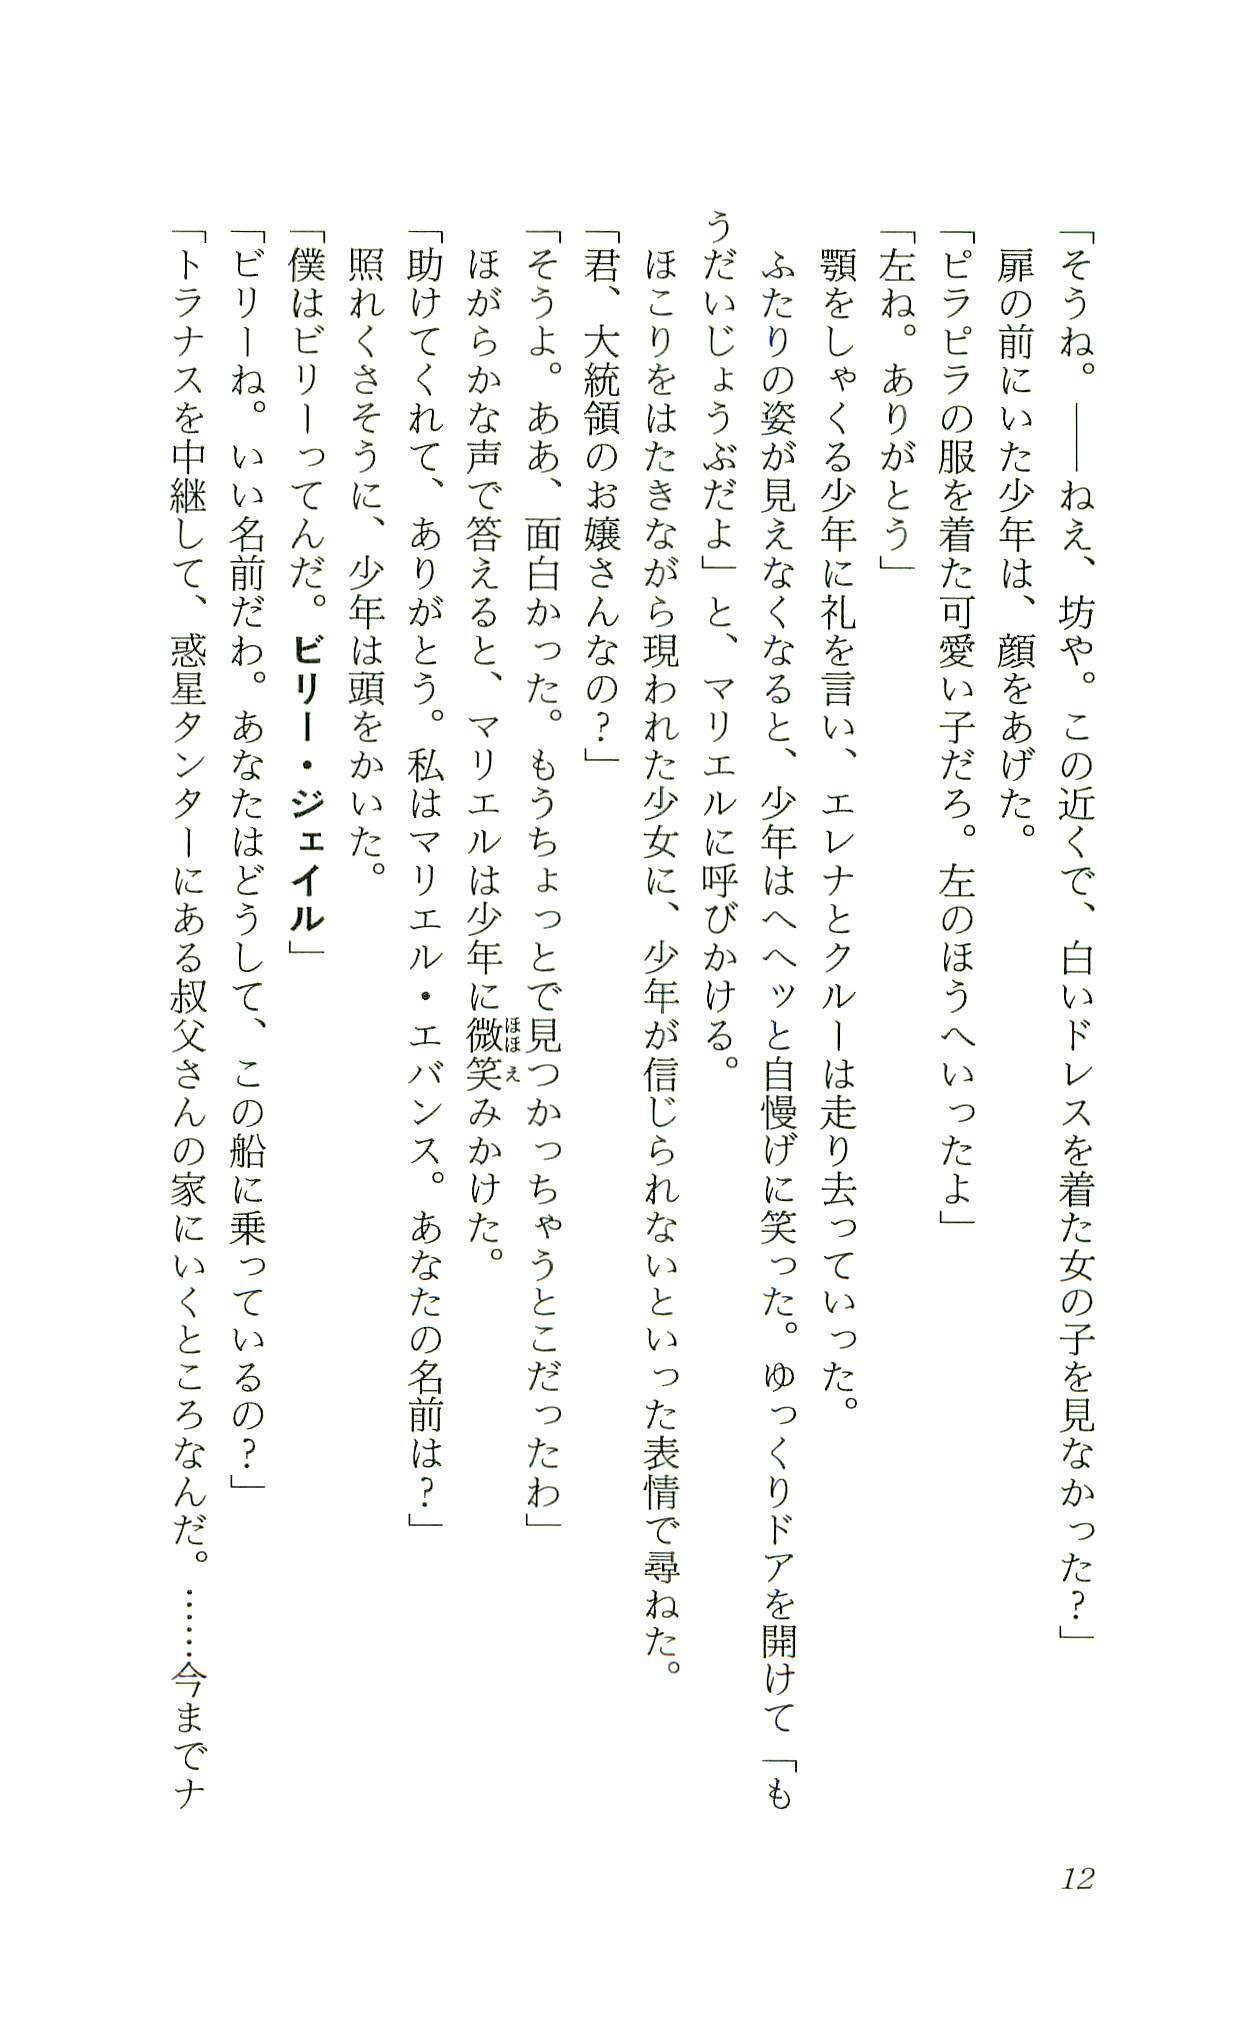 「そうね。――ねえ、坊や。この近くで、白いドレスを着た女の子を見なかった？」
扉の前にいた少年は、顔をあげた。
「ピラピラの服を着た可愛い子だろ。左のほうへいったよ」
「左ね。ありがとう」
顎をしゃくる少年に礼を言い、エレナとクルーは走り去っていった。
ふたりの姿が見えなくなると、少年はヘヘッと自慢げに笑った。ゆっくりドアを開けて「も
うだいじょうぶだよ」と、マリエルに呼びかける。
ほこりをはたきながら現われた少女に、少年が信じられないといった表情で尋ねた。
「君、大統領のお嬢さんなの？」
「そうよ。ああ、面白かった。もうちょっとで見つかっちゃうとこだったわ」
ほがらかな声で答えると、マリエルは少年に微笑みかけた。
ほほえ
「助けてくれて、ありがとう。私はマリエル・エバンス。あなたの名前は？」
照れくさそうに、少年は頭をかいた。
「僕はビリーってんだ。ビリー・ジェイル」
「ビリーね。いい名前だわ。あなたはどうして、この船に乗っているの？」
「トラナスを中継して、惑星タンターにある叔父さんの家にいくところなんだ。……今までナ
12